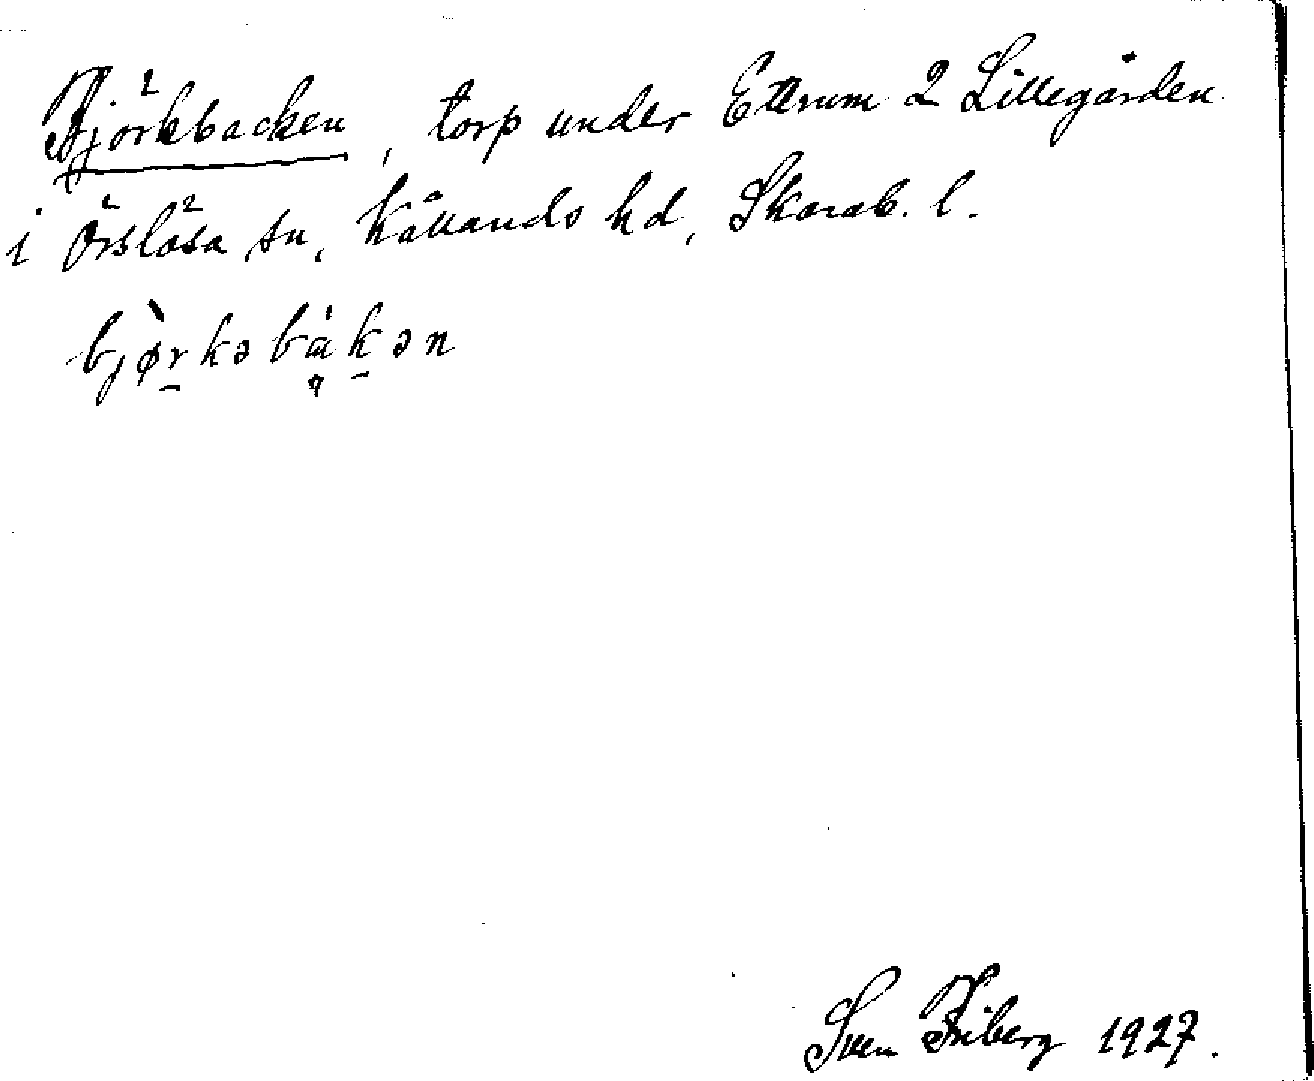 Björkbacken, torp under Ettrum 2 Lillegården
i Örslösa sn, Kållands hd, Skarab. l.
bjø̀rkəbákən
Sven Friberg 1927.